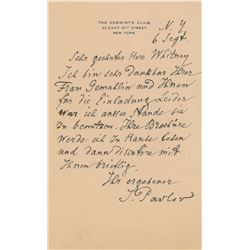 THE CHEMISTS CLUB
52 EAST 41ST STREET,
NEW YORK.
N. Y
6 Sept.
Sehr geehrter Herr Whitney
Ich bin sehr dankbar Ihrer
Frau Gemahlin und Ihnen
für die Einladung Leider
war ich ausser Stande sie
zu benutzen. Ihre Brochüre
werde ich zu Hause lesen
und dann mit
Ihnen brieflig.
Ihr ergebener
I. Pavlov